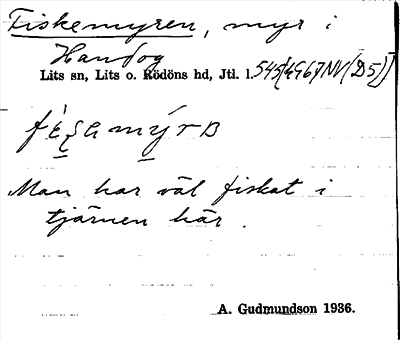 Fiskemyren, myr i
Handog
Lits sn, Lits o. Rödöns hd, Jtl. l. 545[49G7NV(D5)]
Man har väl fiskat i
tjärnen här.
A. Gudmundson 1936.